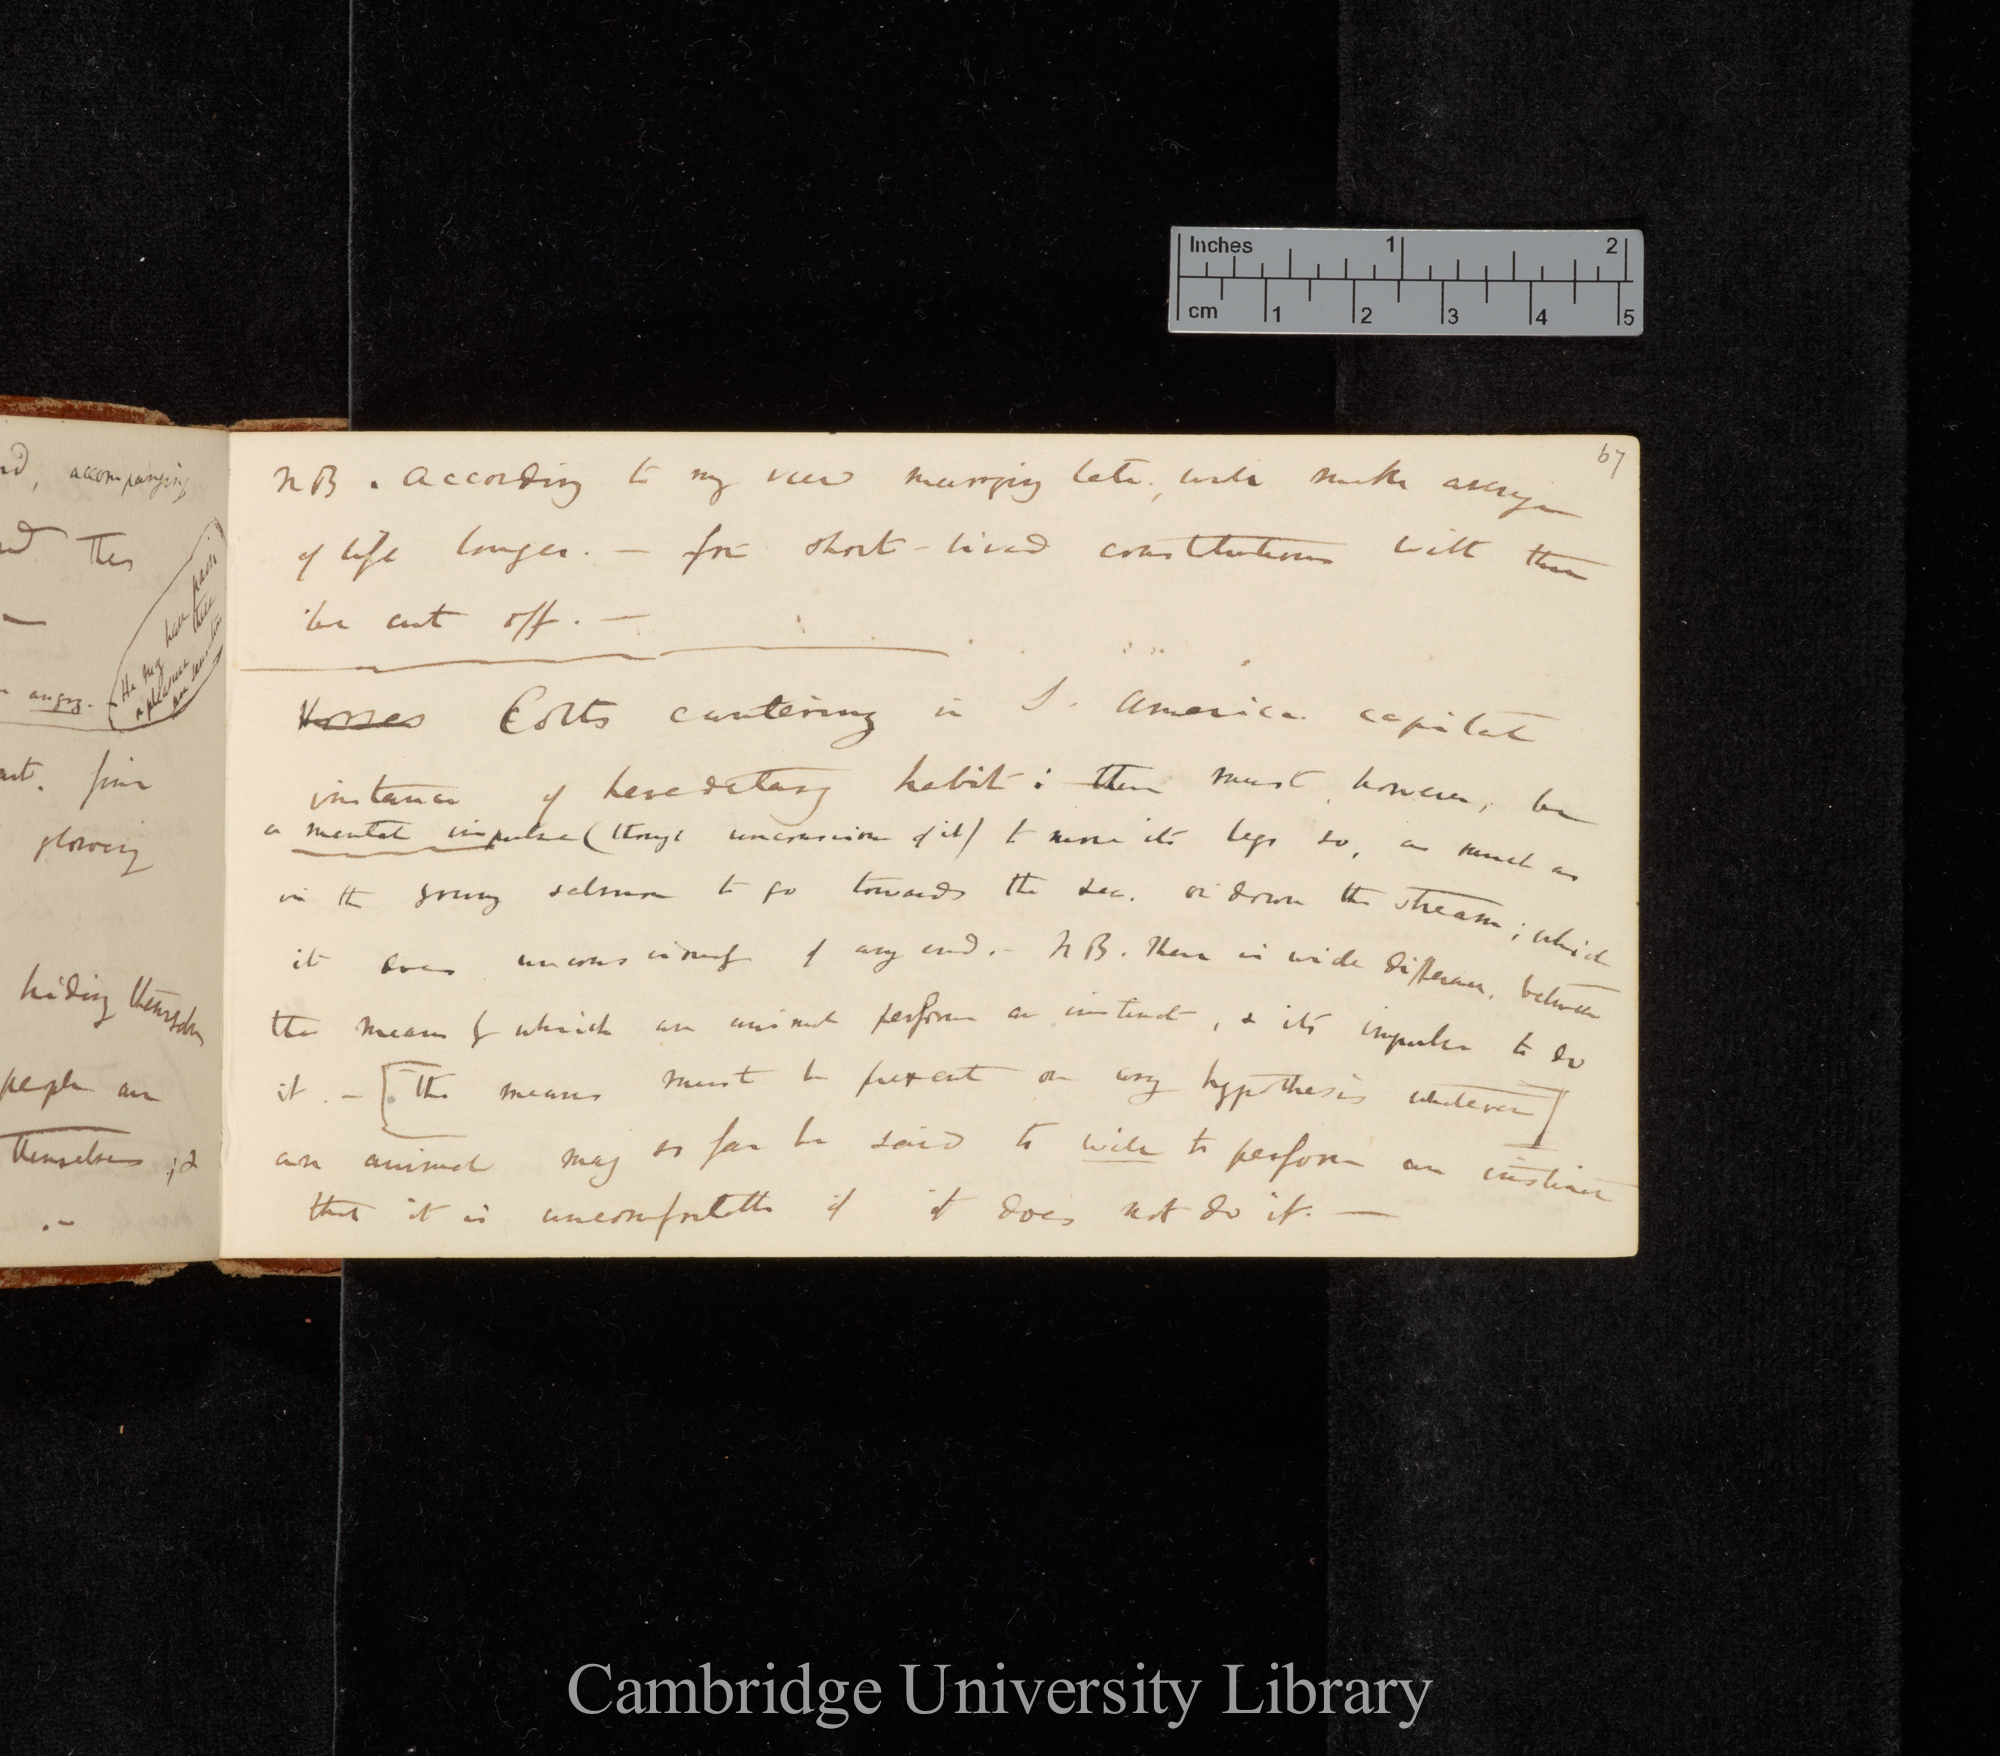 Inches 1 2
cm 1 2 3 4 5
accompanying
then
He may have pain
a pleasure these
are sensation
angry. —
from
glowing
hiding themselves
people are
themselves ; &
.—
67
NB. According to my view marrying late, will make average
of life longer. — for short-lived constitutions will then
be cut off. —
Horses Colts cantering in S. America capital
instance of hereditary habit: there must, however, be
a mental impulse (though unconscious of it) to move its legs so, as much as
in the young salmon to go towards the sea. or down the stream; which
it does unconsciously of any end. — NB. There is wide difference, between
the means by which an animal performs an instinct, & its impulse to do
it. — [the means must be present on any hypothesis whatever]
an animal may so far be said to will to perform an instinct
that it is uncomfortable if it does not do it. —
Cambridge University Library